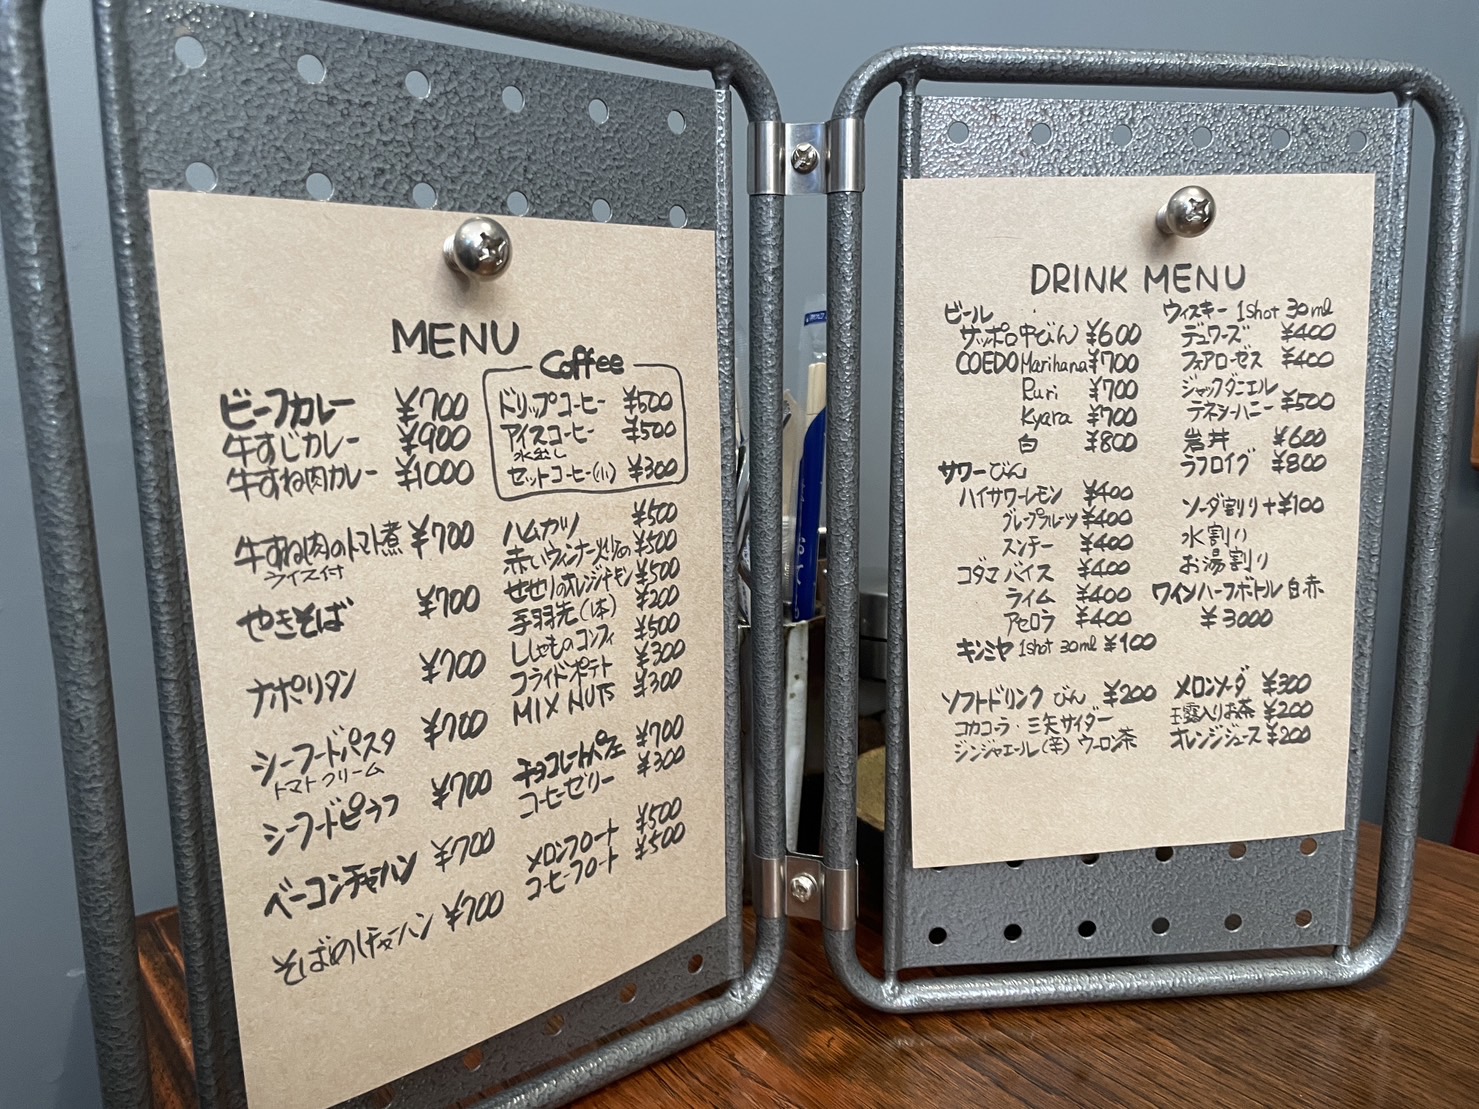 MENU
ビーフカレー ¥700
牛すじカレー ¥900
牛すね肉カレー ¥1000
牛すね肉のトマト煮 ¥700
ライス付
やきそば ¥700
ナポリタン ¥700
シーフードパスタ ¥700
トマトクリーム
シーフードピラフ ¥700
ベーコンチャーハン ¥700
そばめしチャーハン ¥700
Coffee
ドリップコーヒー ¥500
アイスコーヒー ¥500
水出し
セットコーヒー(小) ¥300
ハムカツ ¥500
赤いウィンナー炒め ¥500
せせりのオレンジチキン ¥500
手羽先(1本) ¥200
ししゃものコンフィ ¥500
フライドポテト ¥300
MIX NUTS ¥300
チョコレートパフェ ¥700
コーヒーゼリー ¥300
メロンフロート ¥500
コーヒーフロート ¥500
DRINK MENU
ビール
サッポロ中びん ¥600
COEDO Marihana ¥700
Ruri ¥700
Kyara ¥700
白 ¥800
サワーびん
ハイサワーレモン ¥400
グレープフルーツ ¥400
スンチー ¥400
コダマ バイス ¥400
ライム ¥400
アセロラ ¥400
キンミヤ 1shot 30ml ¥100
ソフトドリンク びん ¥200
コカコーラ・三矢サイダー
ジンジャエール(辛) ウーロン茶
ウィスキー 1shot 30ml
デュワーズ ¥400
フォアローゼス ¥400
ジャックダニエル
テネシーハニー ¥500
岩井 ¥600
ラフロイグ ¥800
ソーダ割り+¥100
水割り
お湯割り
ワインハーフボトル 白 赤
¥3000
メロンソーダ ¥300
玉露入りお茶 ¥200
オレンジジュース ¥200